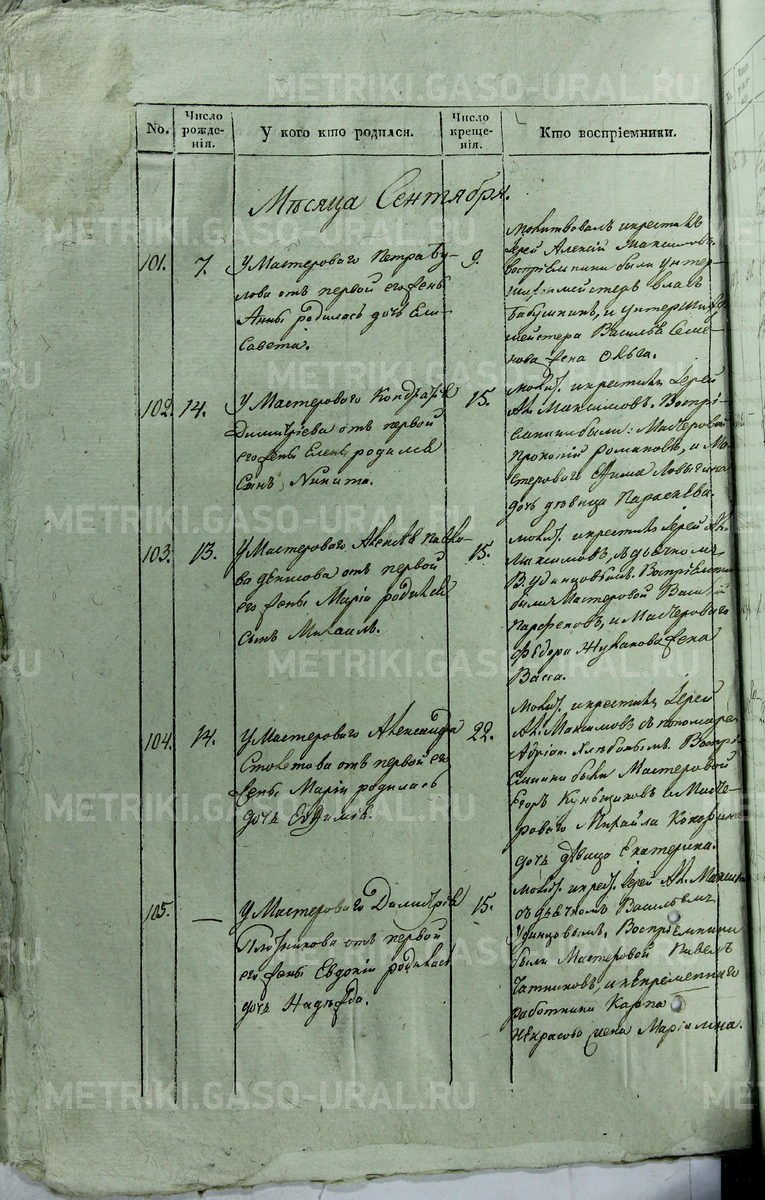 No.
Число рожде-нія.
У кого кто родился.
Число креще-нія.
Кто воспріемники.
Мѣсяца Сентября.
101.
7.
У Мастероваго Петра Бу-
лова отъ первой его жены
Анны родилась дочь Ели-
савета.
9.
молитвовалъ и крестилъ
Іерей Алексій Максимовъ.
воспріемники были унтер-
шихтмейстеръ
Бабушкинъ, и унтершихт
мейстера Василья Семе-
нова жена Ольга.
102.
14.
У Мастероваго Кондратья
Димитріева отъ первой
его жены Елены родился
сынъ Никита.
15.
молит. и крестилъ Іерей
Ал. Максимовъ. Воспрі-
емники были: Мастеровой
Прокопій Романовъ, и Ма-
стероваго
дочь дѣвица Параскева.
103.
13.
У Мастероваго Алексѣя Павло-
ва Денисова отъ первой
его жены Маріи родился
сынъ Михаилъ.
15.
молит. и крестилъ Іерей Ал.
Максимовъ съ дьячкомъ
В. Удинцовымъ. Воспріемники
были Мастеровой Василій
Парфеновъ, и Мастероваго
Федора Жукакова жена
Васса.
104.
14.
У Мастероваго Александра
отъ первой его
жены Маріи родилась
дочь Евфимія.
22.
молит. и крестилъ Іерей
Ал. Максимовъ съ пономаремъ
Адріан. Хлѣбинымъ. Воспрі-
емники были Мастеровой
Егоръ Куньщиковъ и Масте-
роваго Михайла Кокорина
дочь дѣвица Екатерина.
105.
—
У Мастероваго Димитрія
Плотникова отъ первой
его жены Евдокіи родилась
дочь Надежда.
15.
молит. и крест. Іерей Ал. Максим.
съ дьячкомъ Васильемъ
Удинцовымъ. Воспріемники
были Мастеровой Павелъ
и непременнаго
работника Карпа
Некрасова жена Маріамна.
METRIKI.GASO-URAL.RU